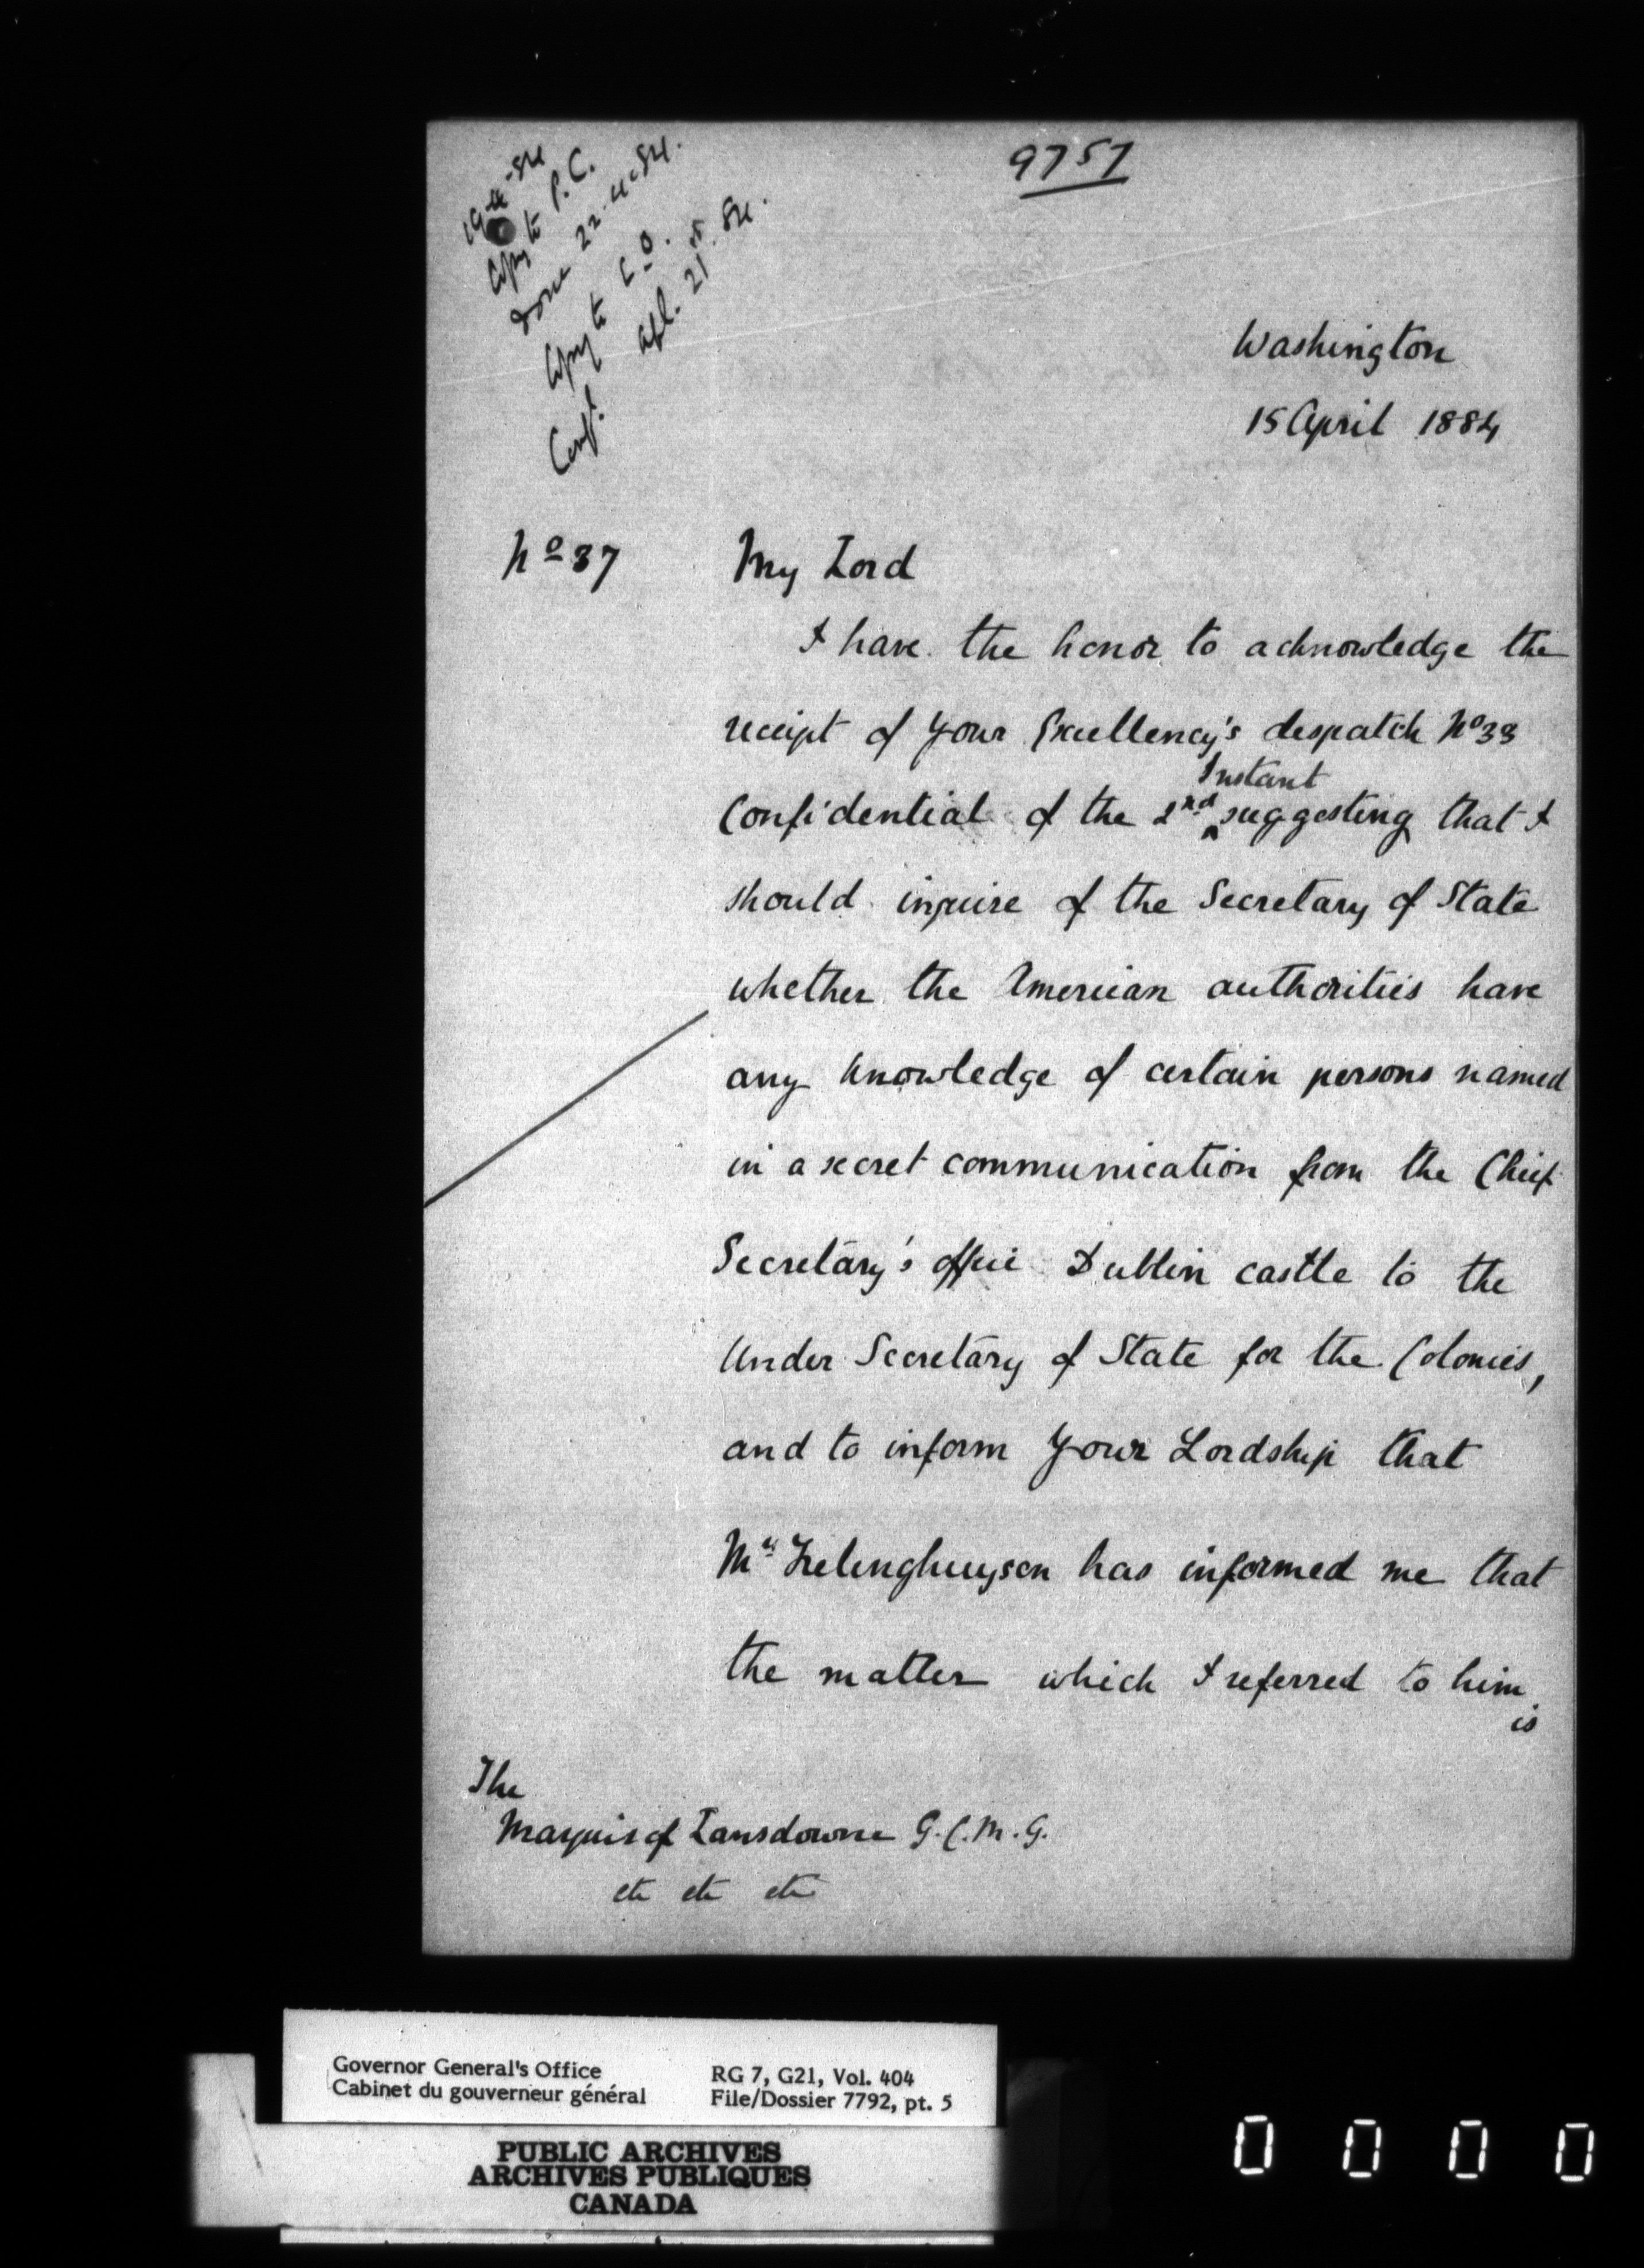 9757
19-4-84
Copy to P.C.
done 22.4.84.
Copy to C.O.
Conf. Apl. 21st. 84.
Washington
15 April 1884
No 37
My Lord
I have the honor to acknowledge the
receipt of Your Excellency's despatch No 33
Instant
Confidential of the 2nd ^ suggesting that I
should inquire of the Secretary of State
whether the American authorities have
any knowledge of certain persons named
in a secret communication from the Chief
Secretary's office Dublin castle to the
Under Secretary of State for the Colonies,
and to inform Your Lordship that
Mr Frelinghuysen has informed me that
the matter which I referred to him
is
The
Marquis of Lansdowne G.C.M.G.
etc etc etc
Governor General's Office
Cabinet du gouverneur général
RG 7, G21, Vol. 404
File/Dossier 7792, pt. 5
PUBLIC ARCHIVES
ARCHIVES PUBLIQUES
CANADA
0 0 0 0